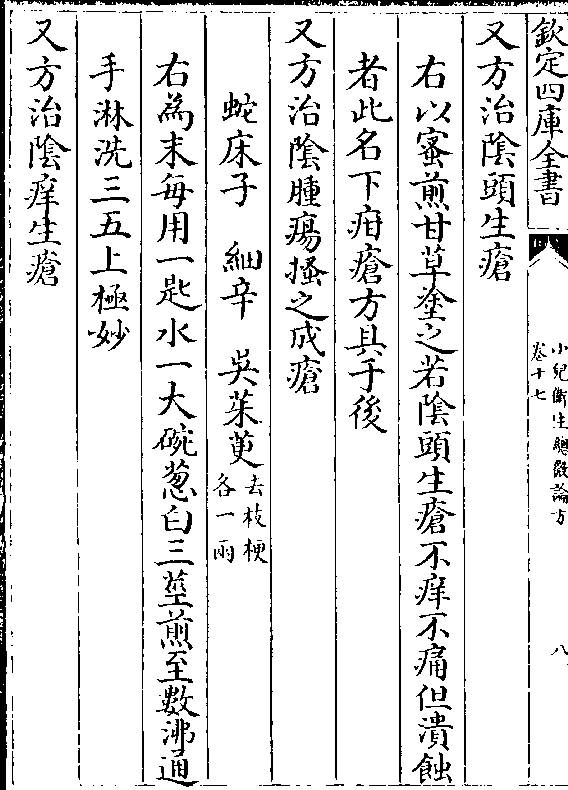 欽定四庫全書
小兒衛生總微論方
卷十七
八
又方治陰頭生瘡
右以蜜煎甘草塗之若陰頭生瘡不痒不痛但潰蝕
者此名下疳瘡方具于後
又方治陰腫瘍搔之成瘡
蛇床子　細辛　吳茱萸去枝梗各一兩
右為末每用一匙水一大碗葱白三莖煎至數沸通
手淋洗三五上極妙
又方治陰痒生瘡